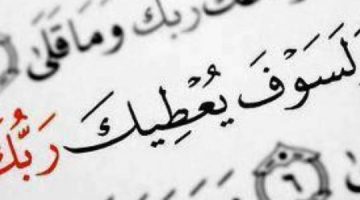 ربك وما قلى
وَلَسَوْفَ يُعْطِيكَ رَبُّكَ
٦